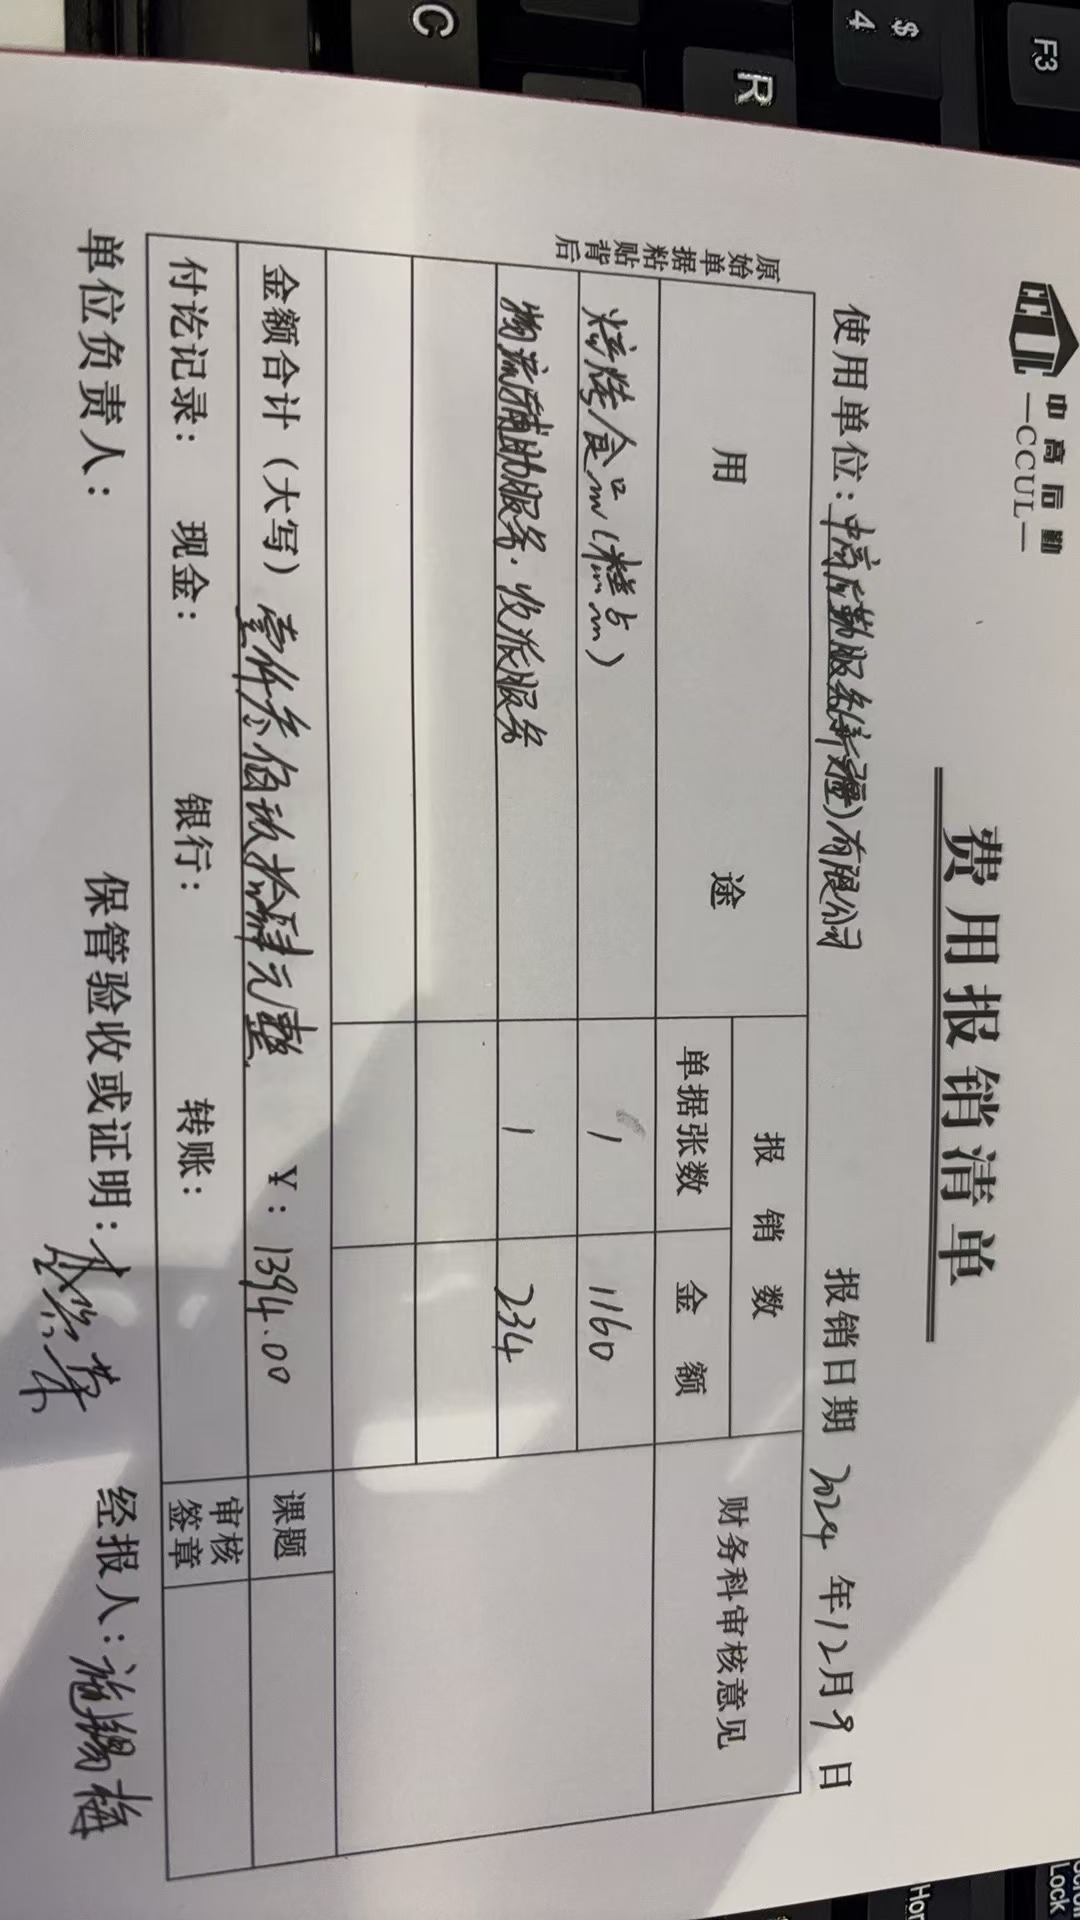 中高后勤
—CCUL—
费用报销清单
使用单位：中高后勤服务(新疆)有限公司 报销日期 2024年12月9日
原始单据粘贴背后
用途 报销数 财务科审核意见
单据张数 金额
焙烤食品(糕点) 1 1160
物流辅助服务·收派服务 1 234
金额合计（大写）壹仟叁佰玖拾肆元整 ¥：1394.00 课题
付讫记录： 现金： 银行： 转账： 审核签章
单位负责人： 保管验收或证明： 经报人：施锡梅
F3
$
4
R
C
Lock